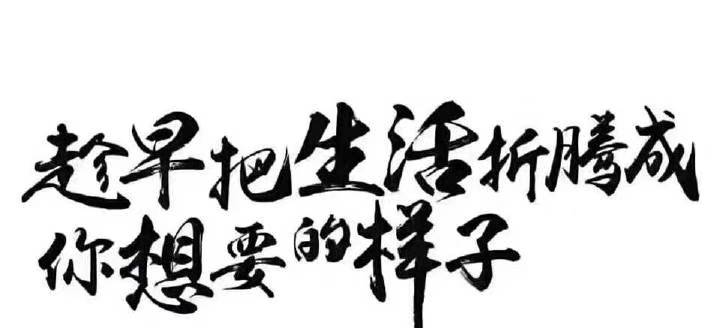 趁早把生活折腾成
你想要的样子